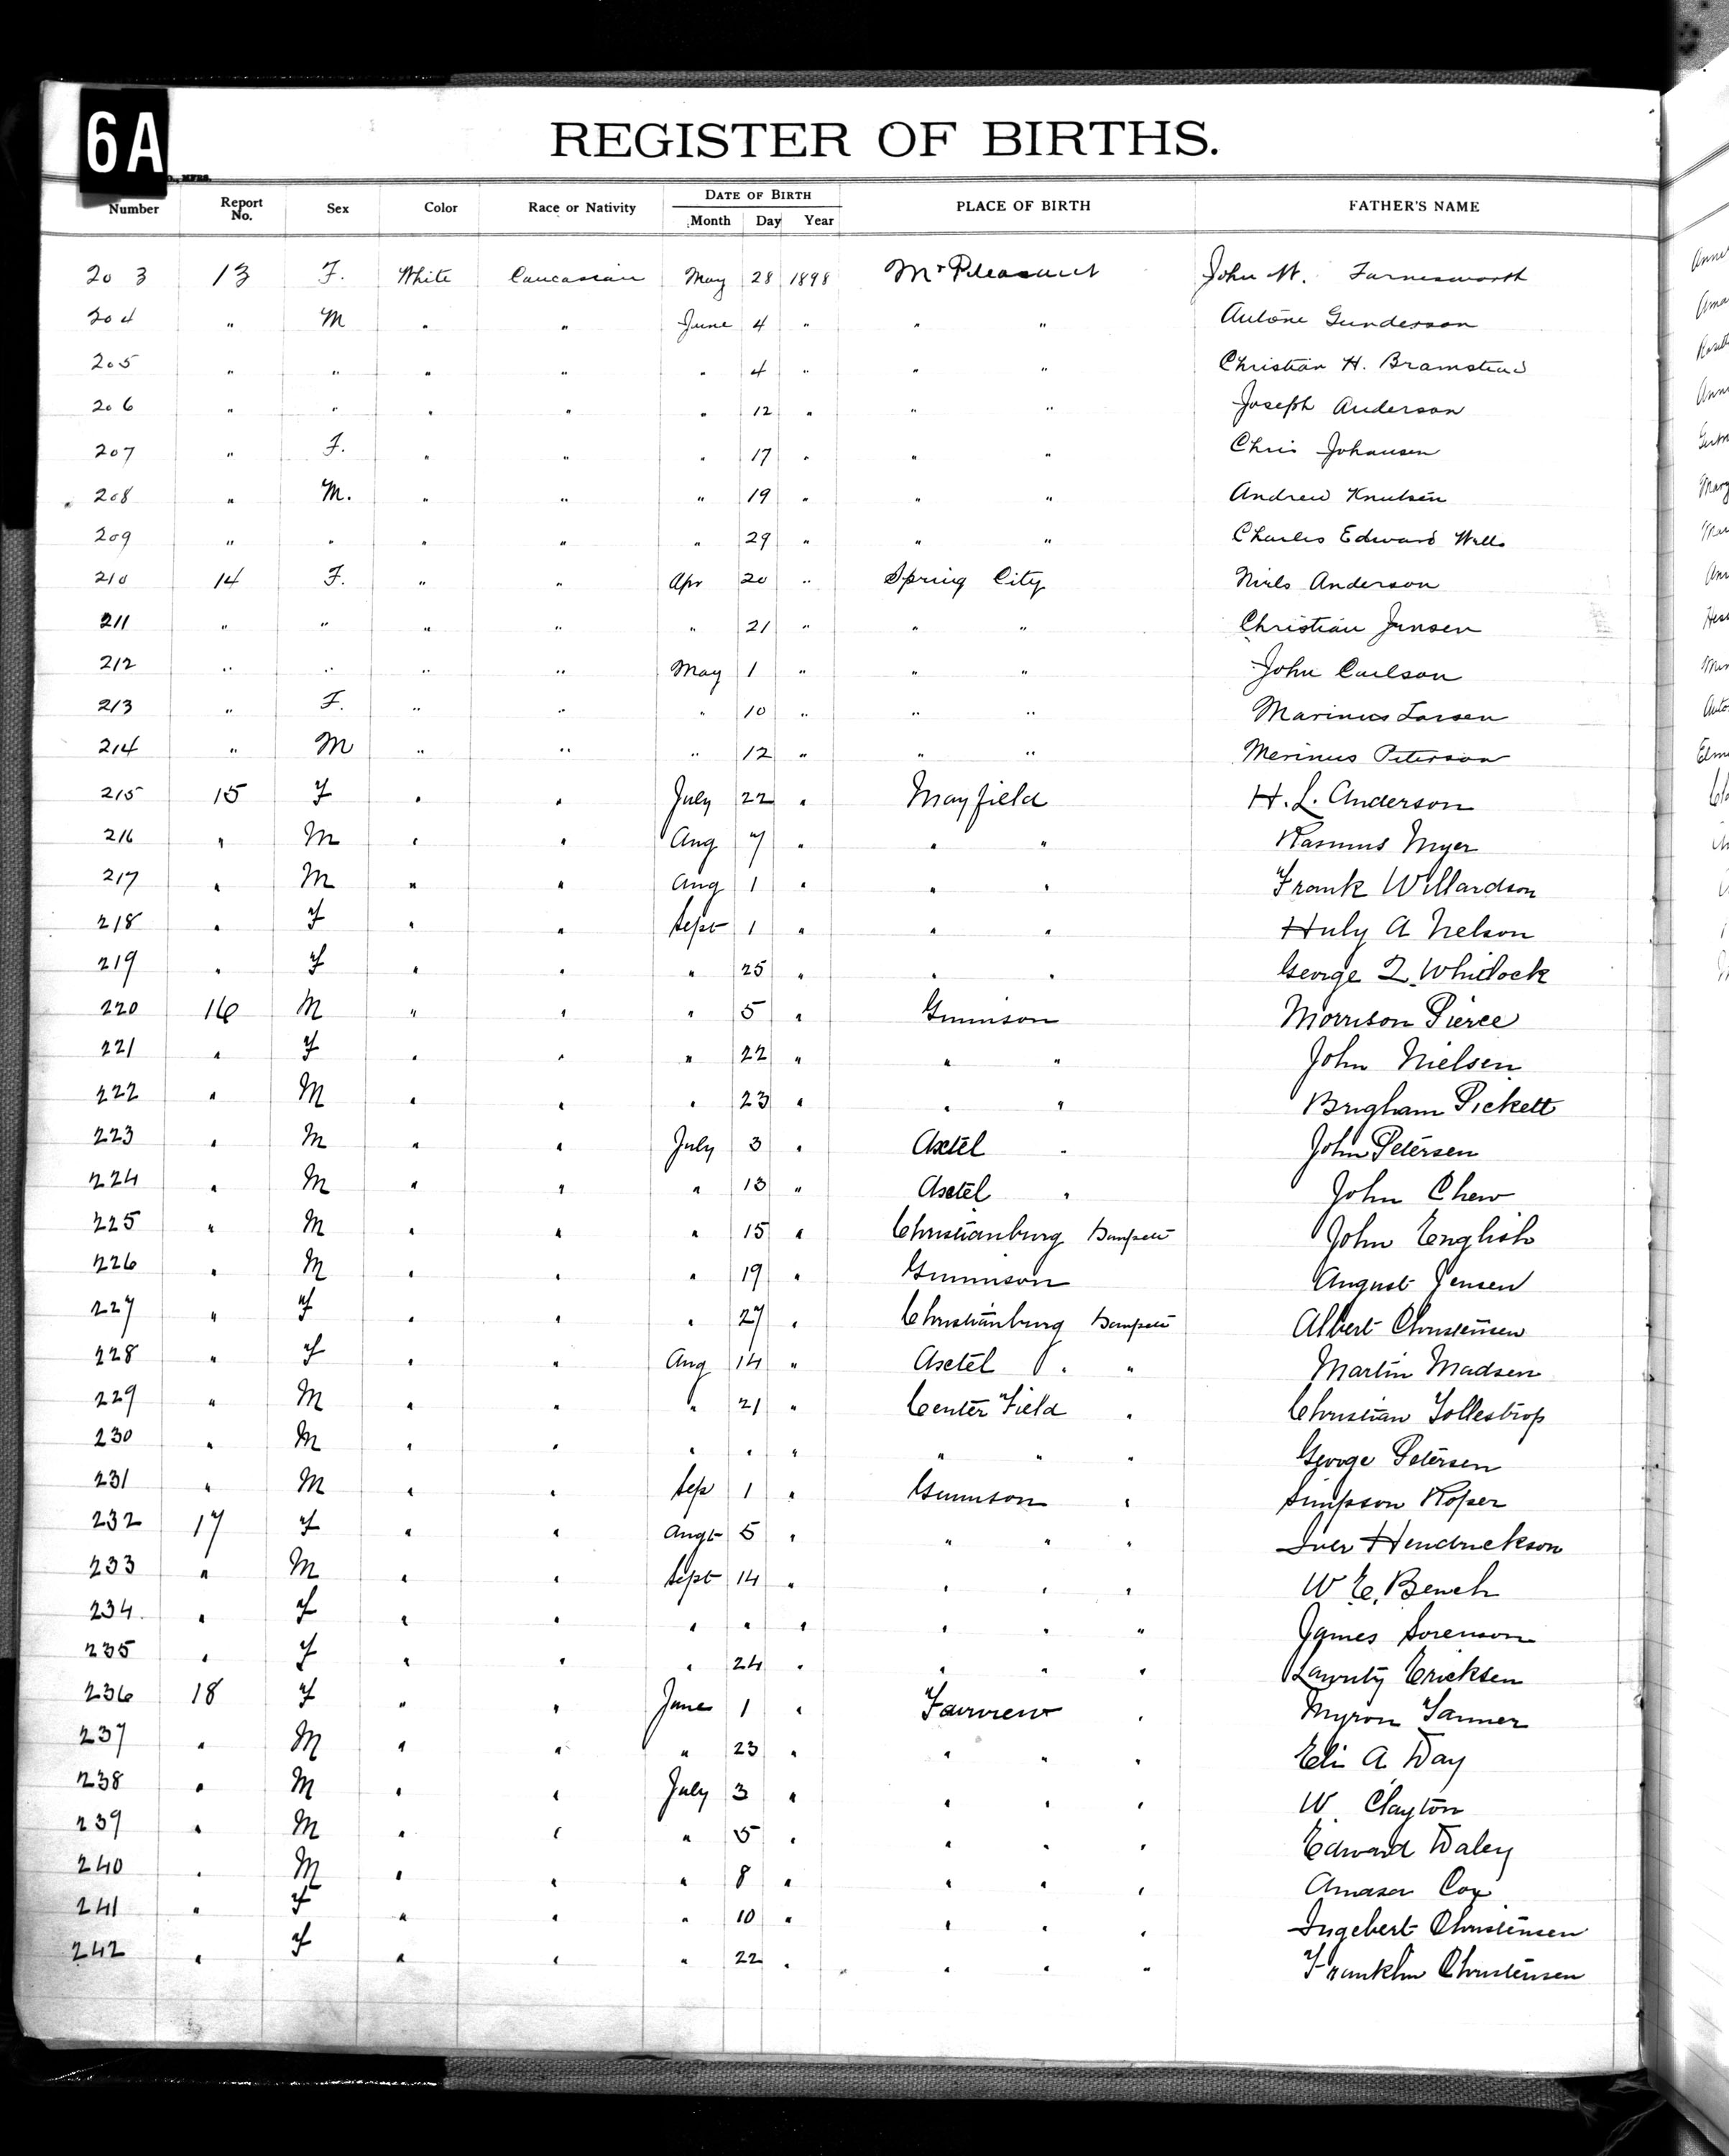 6A
REGISTER OF BIRTHS.
Number Report No. Sex Color Race or Nativity DATE OF BIRTH Month Day Year PLACE OF BIRTH FATHER'S NAME
203 13 F. White Caucasian May 28 1898 Mt Pleasant John W. Farnesworth
204 " M " " June 4 " " " Antone Gunderson
205 " " " " " 4 " " " Christian H. Bramstead
206 " " " " " 12 " " " Joseph Anderson
207 " F. " " " 17 " " " Chris Johansen
208 " M. " " " 19 " " " Andrew Knutsen
209 " " " " " 29 " " " Charles Edward Wells
210 14 F. " " Apr 20 " Spring City Niels Anderson
211 " " " " " 21 " " " Christian Jensen
212 " " " " May 1 " " " John Carlson
213 " F. " " " 10 " " " Marinus Larsen
214 " M " " " 12 " " " Merinus Peterson
215 15 F " " July 22 " Mayfield H. L. Anderson
216 " M " " Aug 7 " " " Rasmus Myer
217 " M " " Aug 1 " " " Frank Willardson
218 " F " " Sept 1 " " " Huly A Nelson
219 " F " " " 25 " " " George Q. Whitlock
220 16 M " " " 5 " Gunnison Morrison Pierce
221 " F " " " 22 " " " John Nielsen
222 " M " " " 23 " " " Brigham Pickett
223 " M " " July 3 " Axtel " John Petersen
224 " M " " " 13 " Axtel " John Chew
225 " M " " " 15 " Christianburg Sanpete John English
226 " M " " " 19 " Gunnison August Jensen
227 " F " " " 27 " Christianburg Sanpete Albert Christensen
228 " F " " Aug 14 " Axtel " " Martin Madsen
229 " M " " " 21 " Center Field " Christian Tollestrop
230 " M " " " " " " " " George Petersen
231 " M " " Sep 1 " Gunnison " Simpson Roper
232 17 F " " Augt 5 " " " " Iver Hendrickson
233 " M " " Sept 14 " " " " W. E. Bench
234. " F " " " " " " " " James Sorenson
235 " F " " " 24 " " " " Lauritz Ericksen
236 18 F " " June 1 " Fairview " Myron Tanner
237 " M " " " 23 " " " " Eli A Day
238 " M " " July 3 " " " " W. Clayton
239 " M " " " 5 " " " " Edward Daley
240 " M " " " 8 " " " " Amasa Cox
241 " F " " " 10 " " " " Ingebert Christensen
242 " F " " " 22 " " " " Franklin Christensen